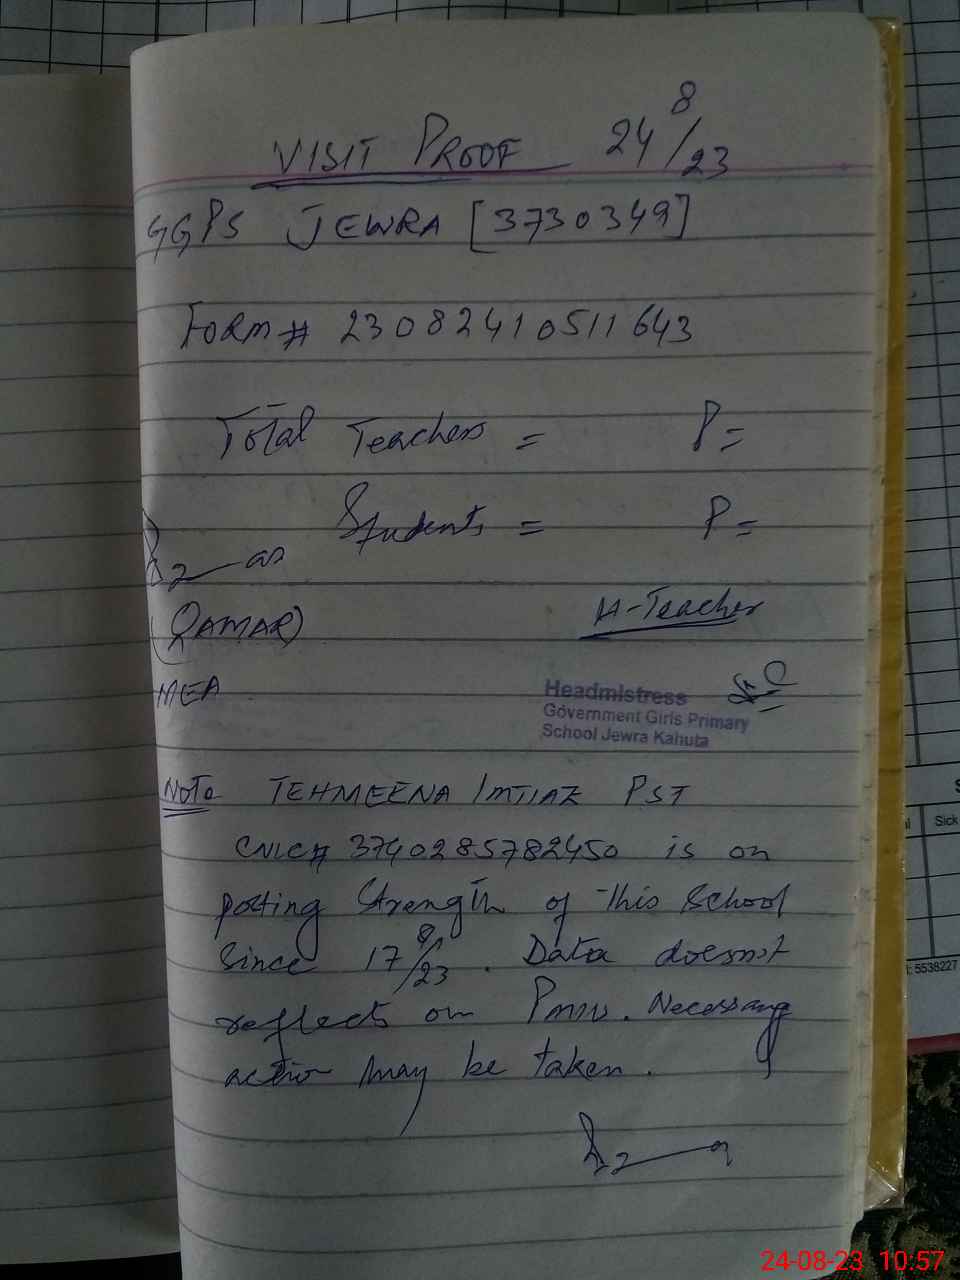 VISIT PROOF 24/8/23
GGPS JEWRA [3730349]
Form # 23082410511643
Total Teachers = P=
Students = P=
(QAMAR)
H-Teacher
MEA
Headmistress
Government Girls Primary
School Jewra Kahuta
Note TEHMEENA IMTIAZ PST
CNIC# 3740285782450 is on
posting Strength of this School
Since 17/8/23. Data doesn't
reflects on Pmiu. Necessary
action may be taken.
Sick
5538227
24-08-23 10:57